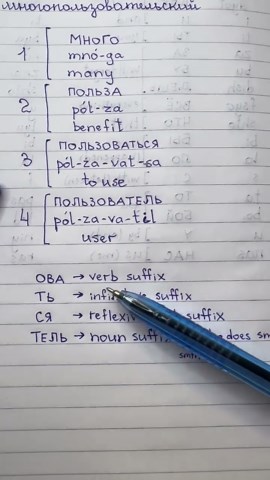 многопользовательский
1
МНОГО
mnó-ga
many
2
ПОЛЬЗА
pól-za
benefit
3
ПОЛЬЗОВАТЬСЯ
pól-za-vat-sa
to use
4
ПОЛЬЗОВАТЕЛЬ
pól-za-va-til
user
ОВА → verb suffix
ТЬ → suffix
СЯ → suffix
ТЕЛЬ → noun does